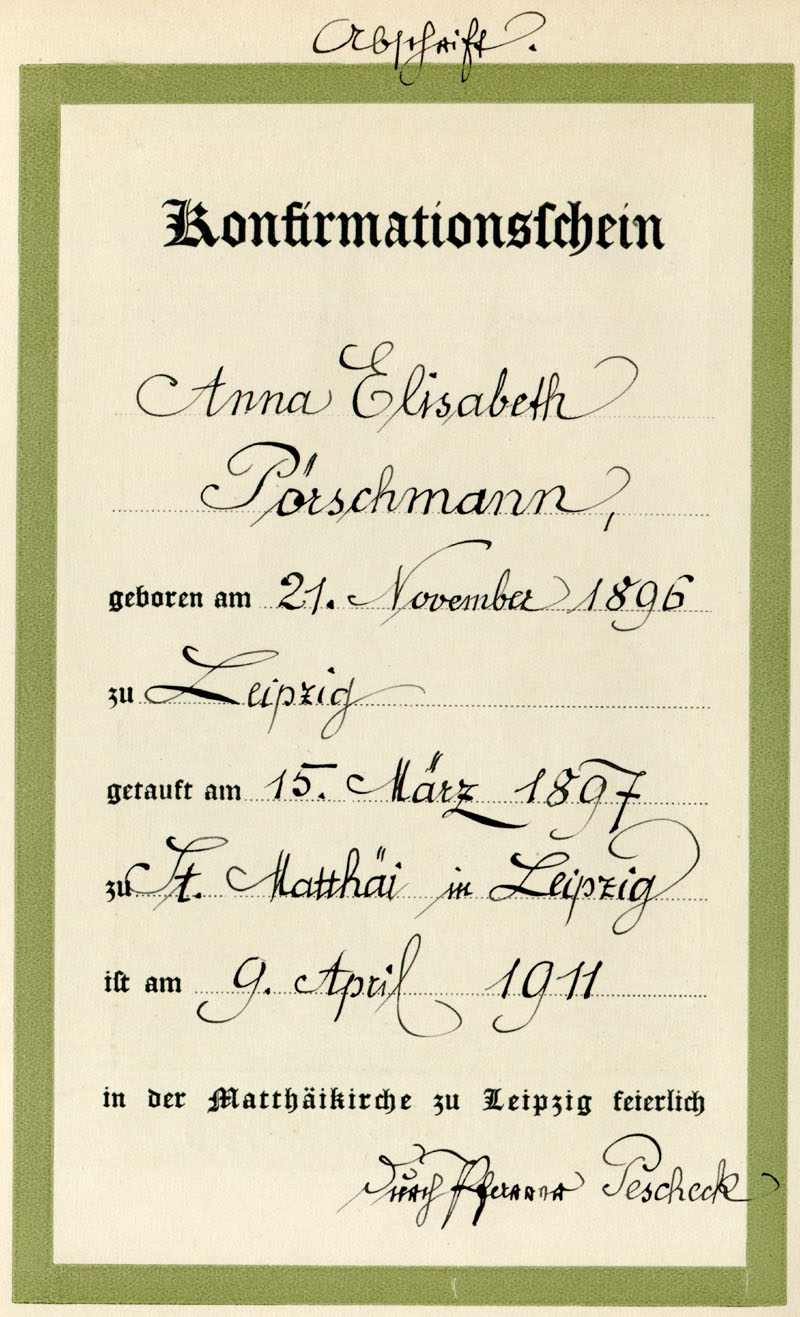 Abschrift.
Konfirmationsschein
Anna Elisabeth
Pörschmann,
geboren am 21. November 1896
zu Leipzig
getauft am 15. März 1897
zu St. Matthäi in Leipzig
ist am 9. April 1911
in der Matthäikirche zu Leipzig feierlich
durch Pfarrer Pescheck